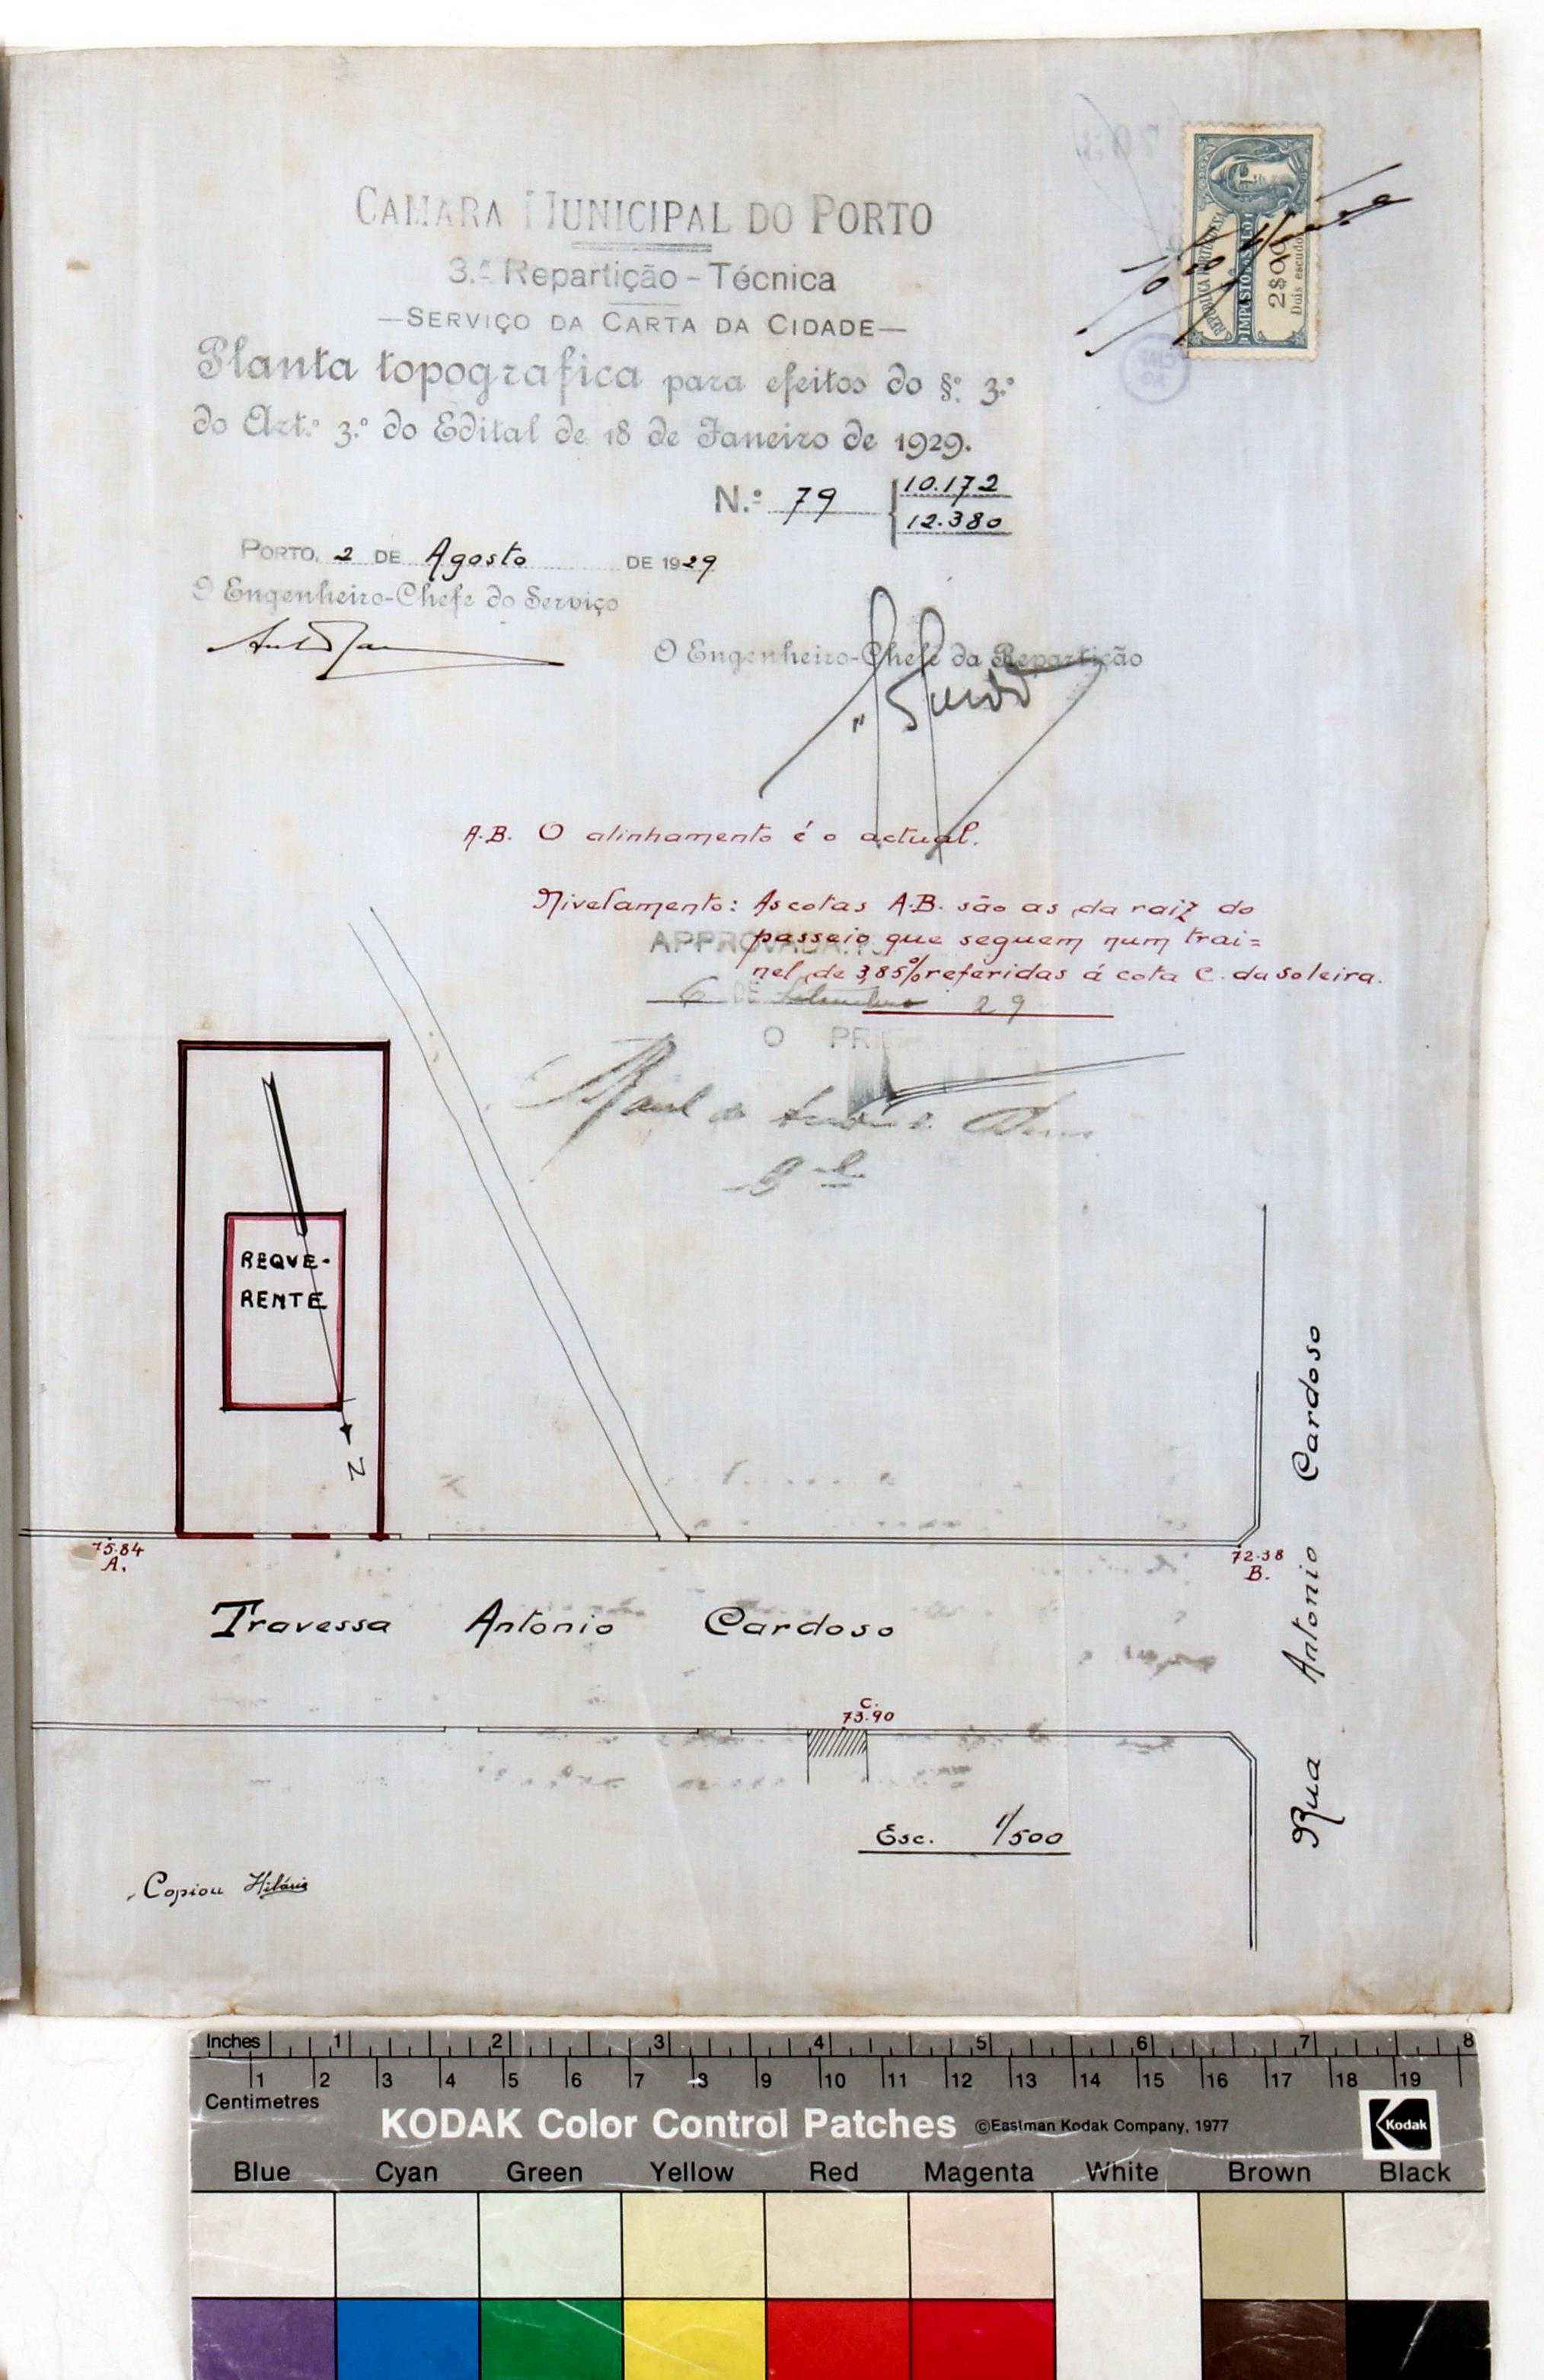 CAMARA MUNICIPAL DO PORTO
3.ª Repartição - Técnica
—SERVIÇO DA CARTA DA CIDADE—
Planta topografica para efeitos do §.º 3.º
do Art.º 3.º do Edital de 18 de Janeiro de 1929.
N.º 79 { 10.172
12.380
PORTO, 2 DE Agosto DE 1929
O Engenheiro-Chefe do Serviço
O Engenheiro-Chefe da Repartição
REPUBLICA PORTUGUESA
IMPOSTO DO SELO
2$00
Dois escudos
A.B. O alinhamento é o actual.
Nivelamento: As cotas A.B. são as da raiz do
passeio que seguem num trai=
nel de 3,85% referidas á cota C. da Soleira.
APPROVADA
6 DE Setembro 29
O PR
REQUE-
RENTE
N
75.84
A.
72.38
B.
Travessa Antonio Cardoso
Rua Antonio Cardoso
C.
73.90
Esc. 1/500
Copiou Hilário
Inches 1 2 3 4 5 6 7 8
1 2 3 4 5 6 7 8 9 10 11 12 13 14 15 16 17 18 19
Centimetres
KODAK Color Control Patches ©Eastman Kodak Company, 1977 Kodak
Blue Cyan Green Yellow Red Magenta White Brown Black